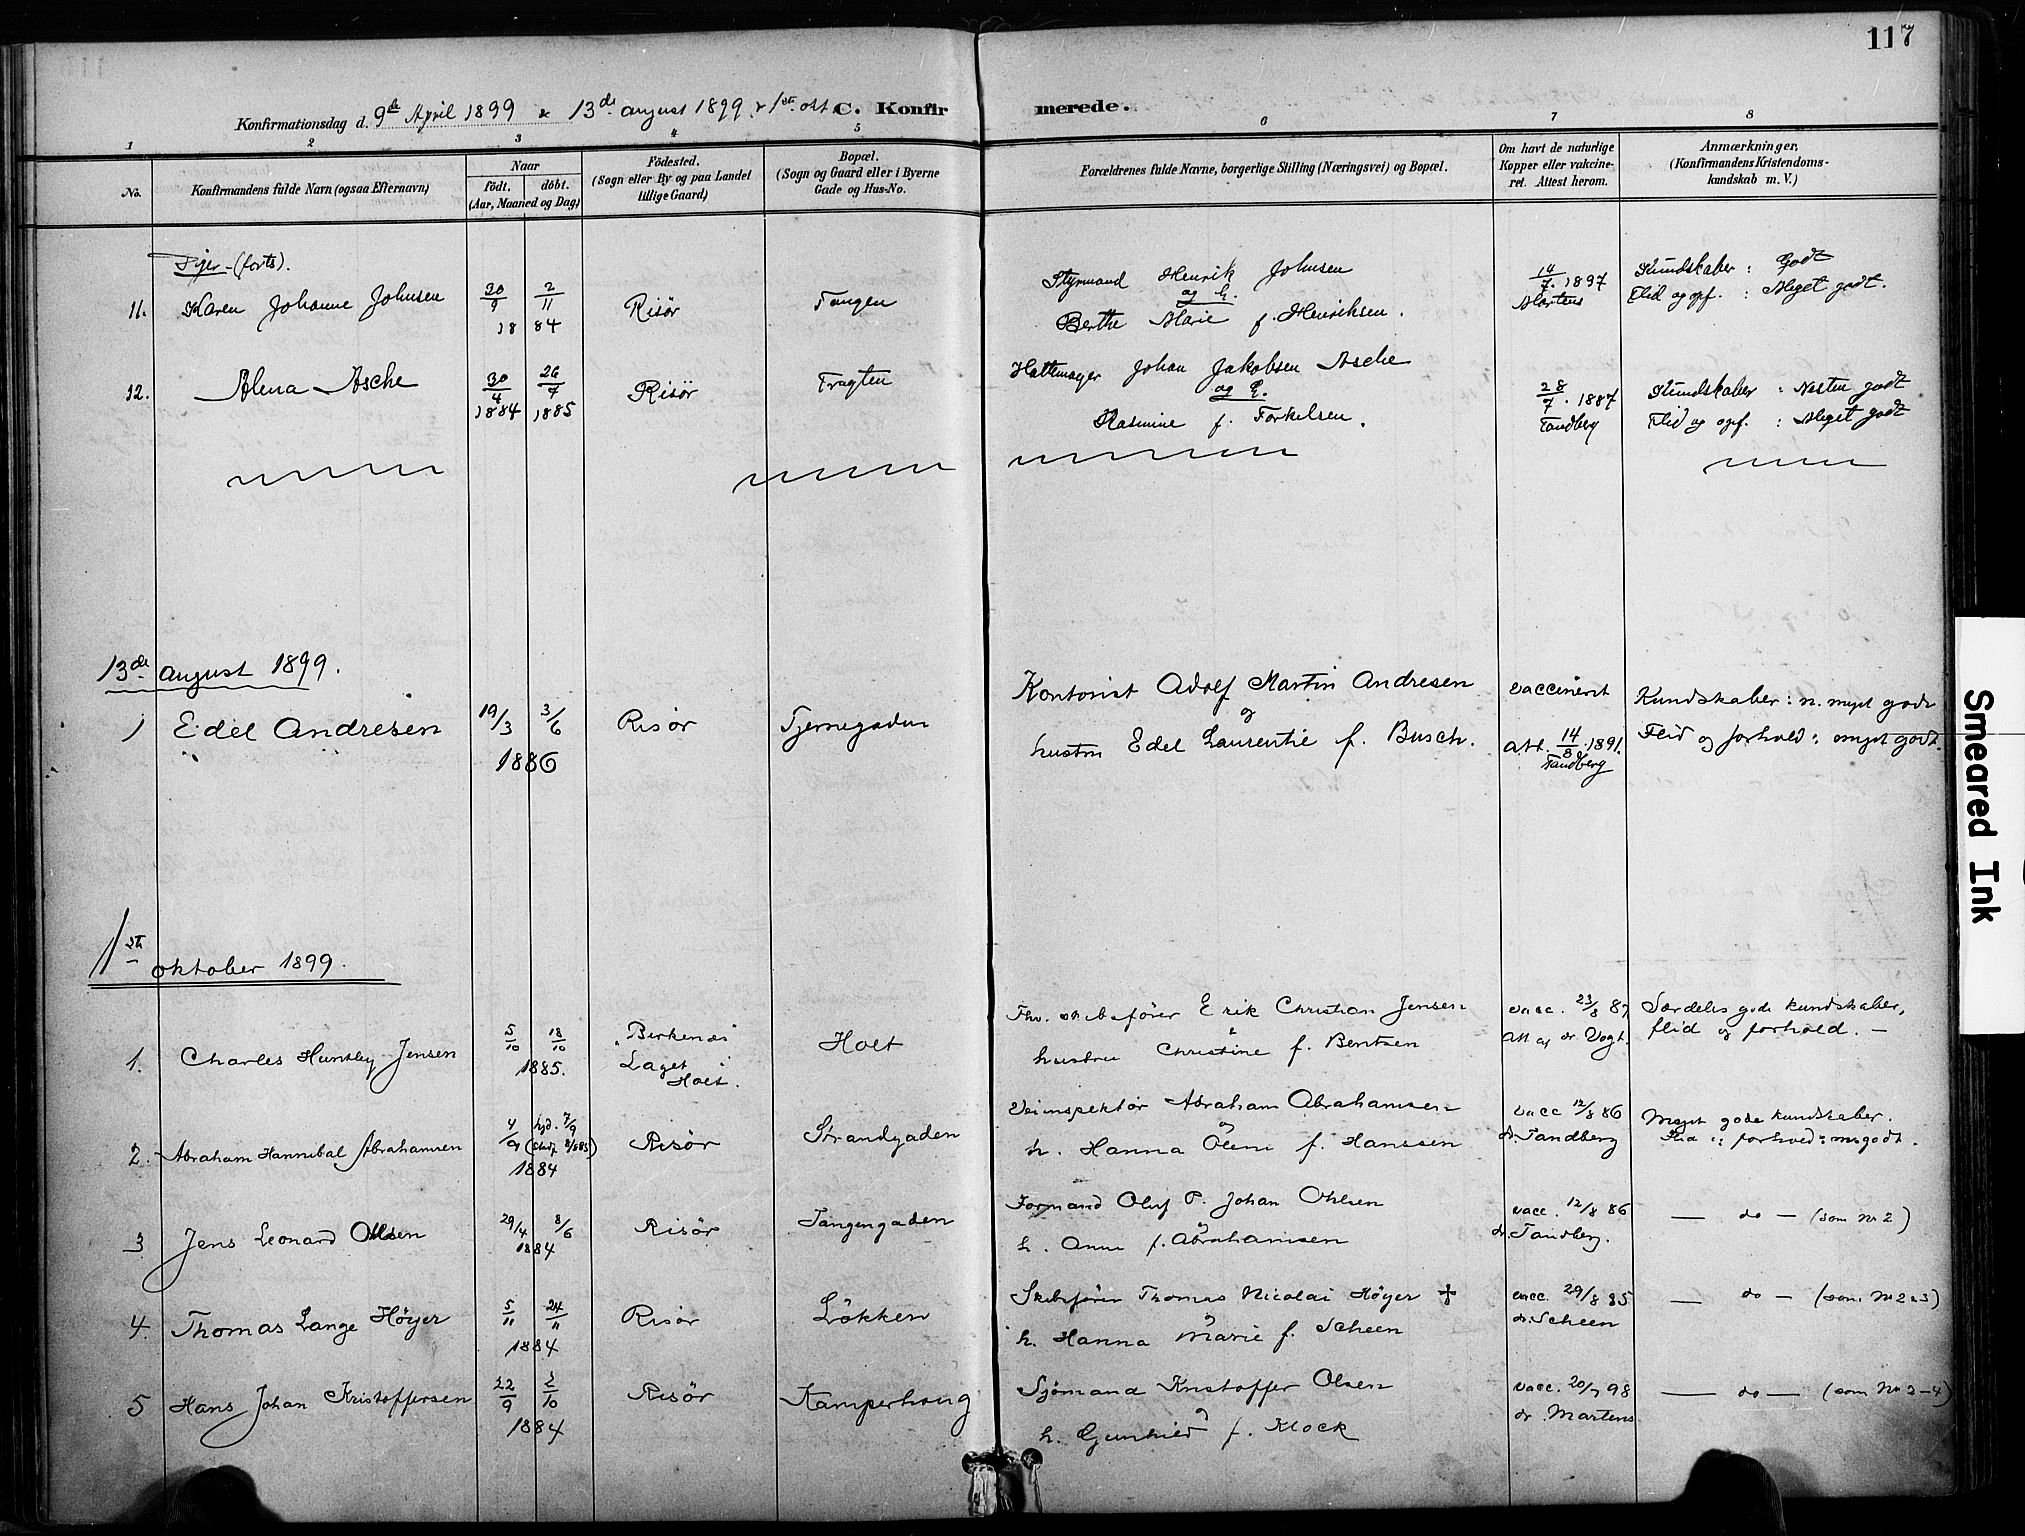 117
Konfirmationsdag d. 9de April 1899 & 13de august 1899. & 1st. okt. C. Konfirmerede.
1 2 3 4 5 6 7 8
No.
Konfirmandens fulde Navn (ogsaa Efternavn)
Naar
födt. döbt.
(Aar, Maaned og Dag)
Födested.
(Sogn eller By og paa Landet
tillige Gaard)
Bopæl.
(Sogn og Gaard eller i Byerne
Gade og Hus-No.
Forældrenes fulde Navne, borgerlige Stilling (Næringsvei) og Bopæl.
Om havt de naturlige
Kopper eller vakcine-
ret. Attest herom.
Anmærkninger,
(Konfirmandens Kristendoms-
kundskab m. V.)
Piger (forts).
11. Karen Johanne Johnsen 30/9 2/11 1884 Risör Tangen
Styrmand Henrik Johnsen
og h.
Berthe Marie f. Henriksen.
14/7. 1897
Martens
Kundskaber: Godt
Flid og opf.: Meget godt.
12. Alena Asche 30/4 1884 26/7 1885 Risör Tragten
Hattemager Johan Jakobsen Asche
og h.
Rasmine f. Torkelsen.
28/7. 1887
Tandberg
Kundskaber: Næsten godt
Flid og opf.: Meget godt
13de august 1899.
1 Edel Andresen 19/3 3/6 1886 Risør Tjernegaden
Kontorist Adolf Martin Andresen
og
hustru Edel Laurentie f. Busch.
vaccineret
att. 14/8 1891.
Tandberg
Kundskaber: n. meget godt
Flid og forhold: meget godt.
1st oktober 1899.
1. Charles Huntley Jensen 5/10 18/10 1885. Birkenes
Laget
Holt. Holt
Fhv. skibsfører Erik Christian Jensen
&
hustru Christine f. Bentsen
vacc. 23/8 87
att af dr Vogt.
Særdeles gode kundskaber,
flid og forhold. —
2. Abraham Hannibal Abrahamsen 4/9 hjd. 7/9 1884 Risør Strandgaden
Veiinspektør Abraham Abrahamsen
og
h. Hanna Olene f. Hanssen
vacc 12/8 86
dr. Tandberg
Meget gode kundskaber.
3 Jens Leonard Ohlsen 29/4 8/6 1884 Risør Tangengaden
Formand Oluf P. Johan Ohlsen
og
h. Anne f. Abrahamsen
vacc. 12/8 86
dr. Tandberg.
— do — (som Nr 2)
4. Thomas Lange Høyer 5/11 24/11 1884 Risør Løkken
Skibsfører Thomas Nicolai Høyer +
og
h. Hanna Marie f. Scheen
vacc. 29/8 85
dr. Scheen
— do — (som Nr 2 & 3)
5 Hans Johan Kristoffersen 22/9 2/10 1884 Risør Kamperhoug
Sjömand Kristoffer Olsen
og
h. Gunhild f. Klock
vacc. 20/7 98
dr. Martens
— do — (som Nr 2-4)
Smeared Ink